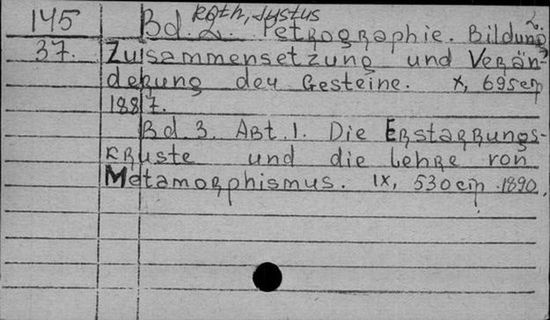 145 Roth, Justus
Bd. 2. Petrographie. Bildung,
37. Zusammensetzung und Verän-
derung der Gesteine. X, 695 стр
1887.
Bd. 3. Abt. 1. Die Erstarrungs-
kruste und die Lehre von
Metamorphismus. IX, 530 стр. 1890.